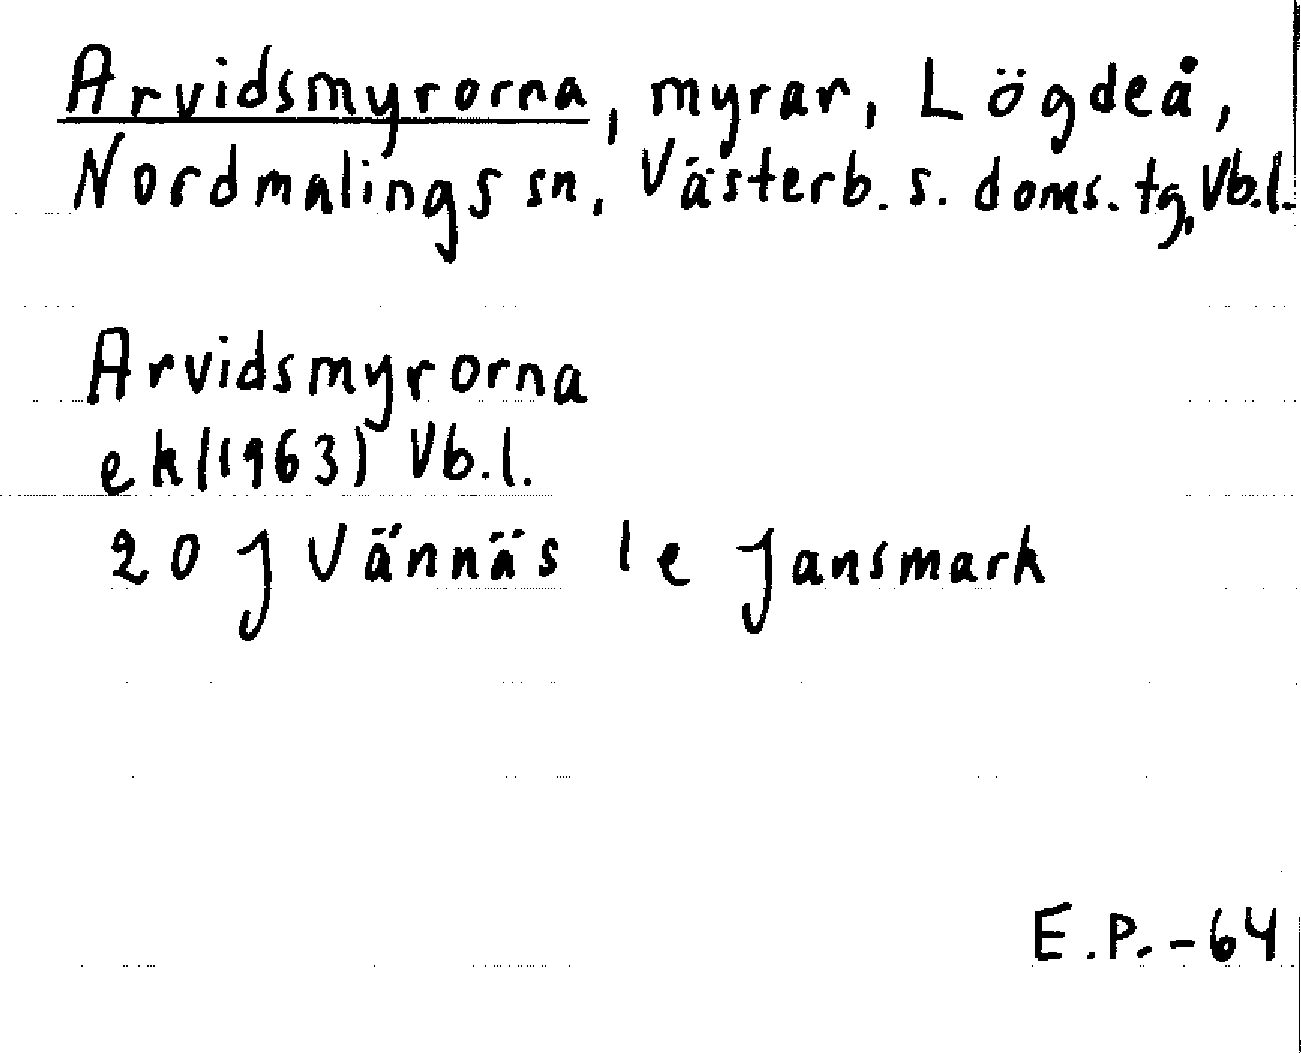 Arvidsmyrorna, myrar, Lögdeå,
Nordmalings sn, Västerb. s. doms. tg, Vb.l.
Arvidsmyrorna
ek (1963) Vb.l.
20 J Vännäs 1 e Jansmark
E.P. -64